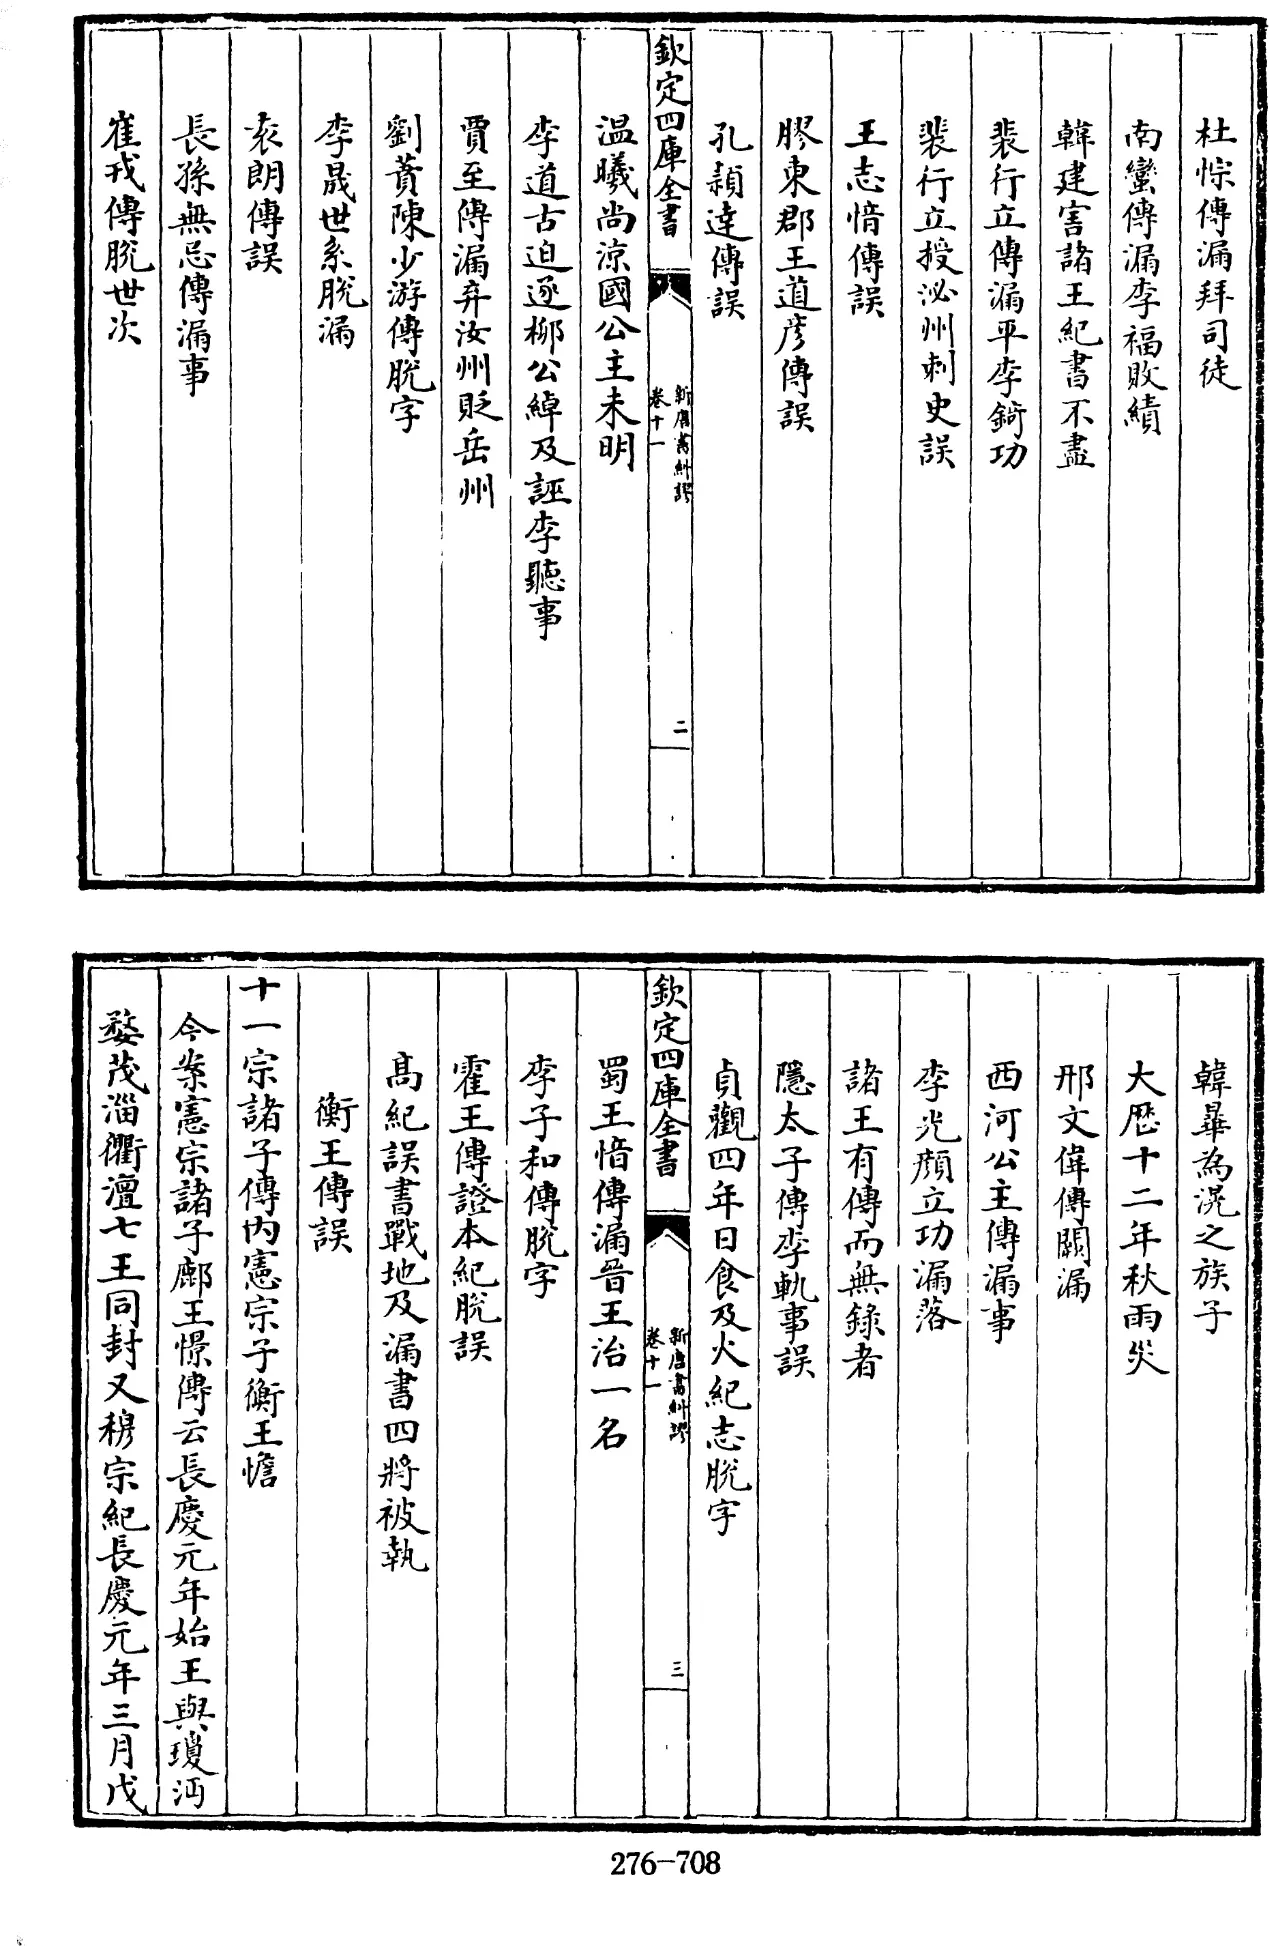 杜悰傳漏拜司徒
南蠻傳漏李福敗績
韓建害諸王紀書不盡
裴行立傳漏平李錡功
裴行立授泌州刺史誤
王志愔傳誤
膠東郡王道彦傳誤
孔穎達傳誤
欽定四庫全書
新唐書糾謬
卷十一
二
温曦尚涼國公主未明
李道古迫逐柳公綽及誣李聽事
賈至傳漏弃汝州貶岳州
劉蕡陳少游傳脫字
李晟世系脫漏
袁朗傳誤
長孫無忌傳漏事
崔戎傳脫世次
韓皋為滉之族子
大厯十二年秋雨災
邢文偉傳闕漏
西河公主傳漏事
李光顔立功漏落
諸王有傳而無錄者
隱太子傳李軌事誤
貞觀四年日食及火紀志脫字
欽定四庫全書
新唐書糾謬
卷十一
三
蜀王愔傳漏晉王治一名
李子和傳脫字
霍王傳證本紀脫誤
高紀誤書戰地及漏書四將被執
衡王傳誤
十一宗諸子傳内憲宗子衡王憺
今案憲宗諸子鄜王憬傳云長慶元年始王與瓊沔
婺茂淄衢澶七王同封又穆宗紀長慶元年三月戊
276-708